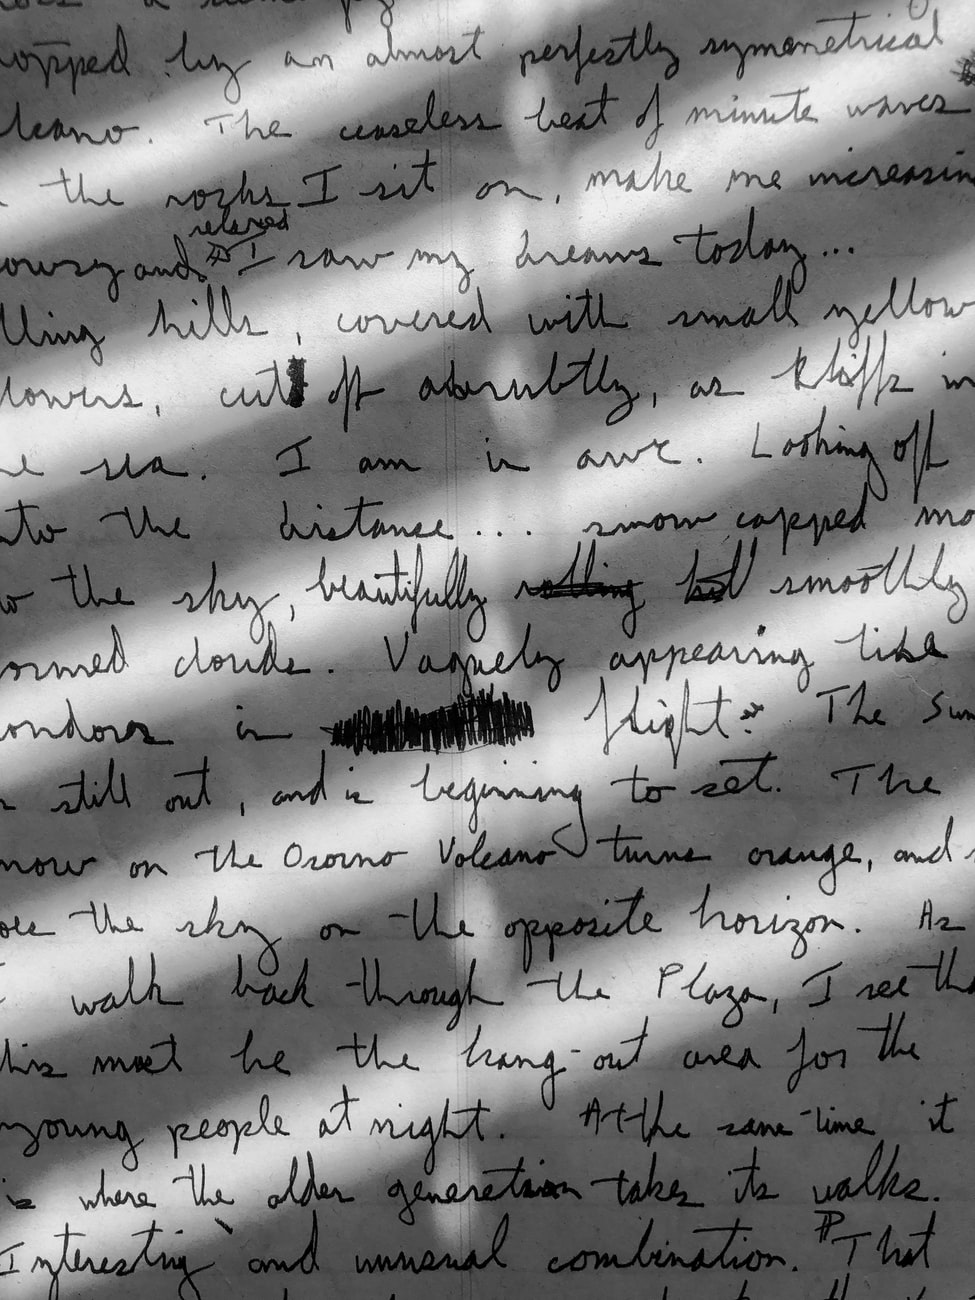 topped by an almost perfectly symmetrical
lcano. The ceaseless beat of minute waves
the rocks I sit on, make me increasin
relaxed
owsy and I saw my dreams today...
lling hills, covered with small yellow
lowers, cut off abrubtly, as kliffs in
he sea. I am in awe. Looking off
nto the distance... snow capped mo
w the sky, beautifully rolling smoothly
ormed clouds. Vaguely appearing like
ondors in flight. The Sun
s still out, and is beginning to set. The
now on the Osorno Volcano turns orange, and
oes the sky on the opposite horizon. As
I walk back through the Plaza, I see tha
his must be the hang-out area for the
young people at night. At the same time it
is where the older generation takes its walks.
Interesting and unusual combination. That